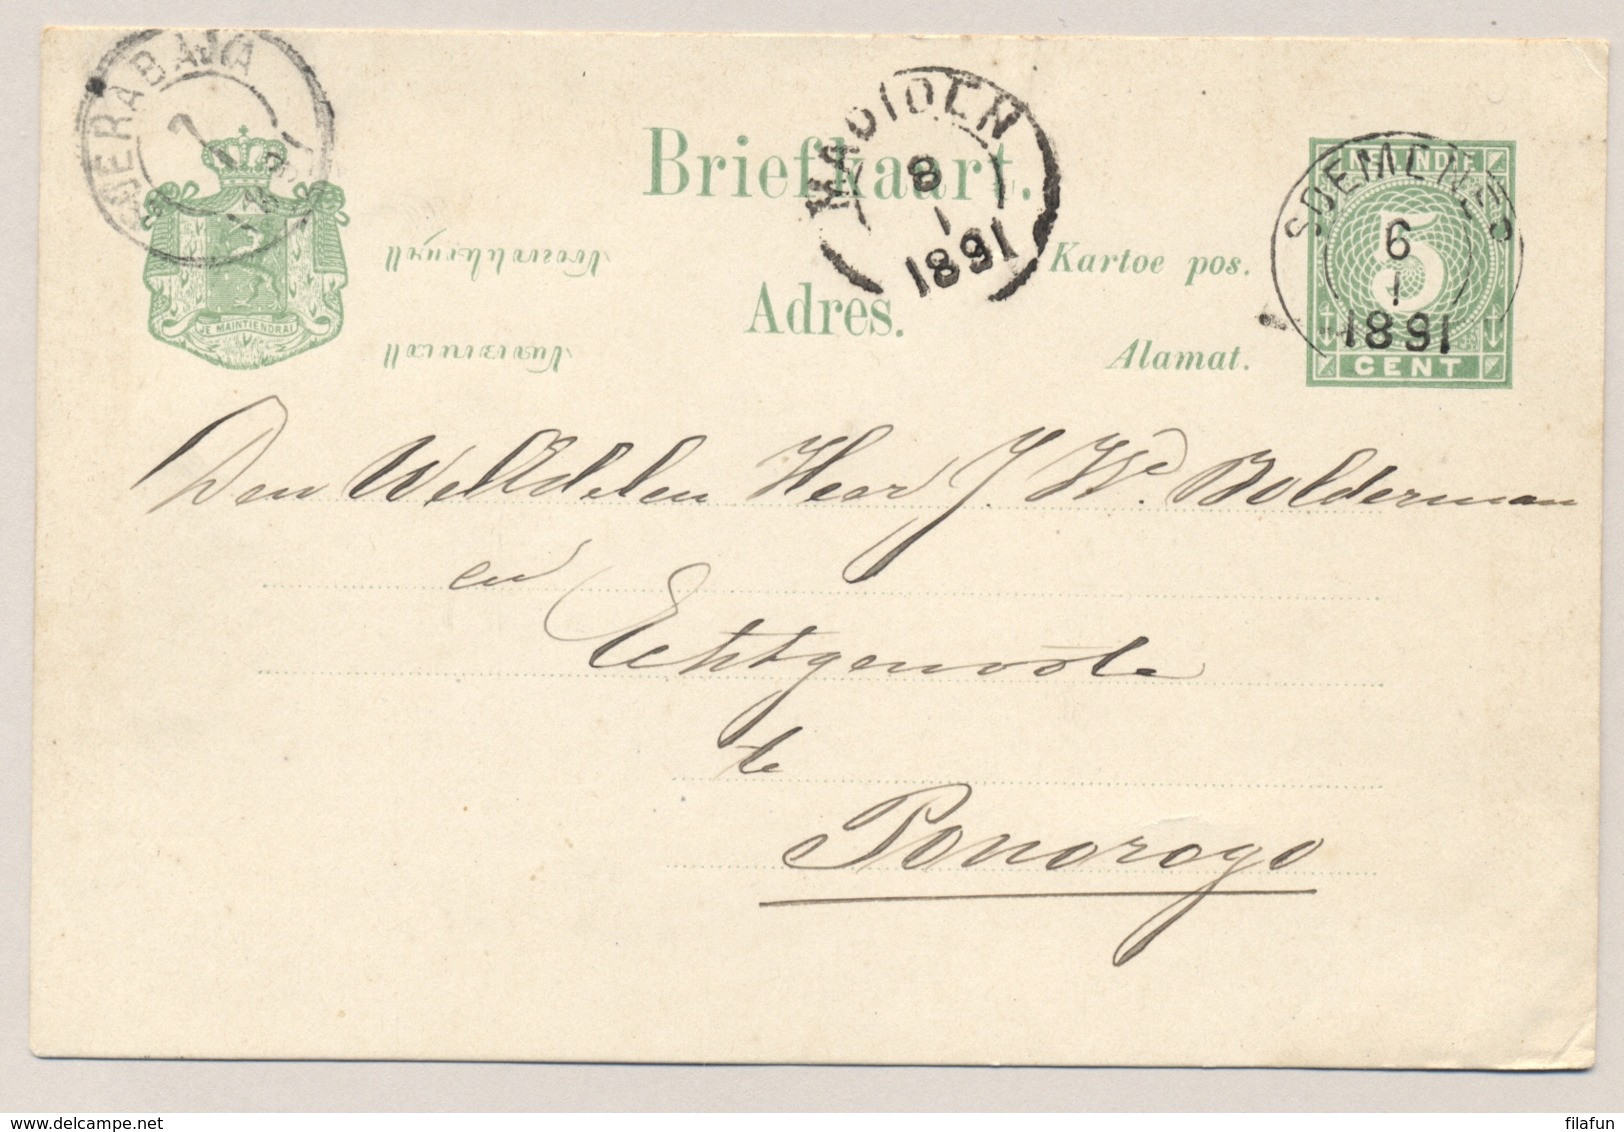 SOERABAJA
7
1
JE MAINTIENDRAI
Briefkaart.
Kartoe pos.
Adres.
Alamat.
MADIOEN
8
1
1891
NED. INDIE
5
CENT
SOEMENEP
6
1
1891
Den WelEdelen Heer J. Wc. Bolderman
en
Echtgenoote
te
Ponorogo
filafun